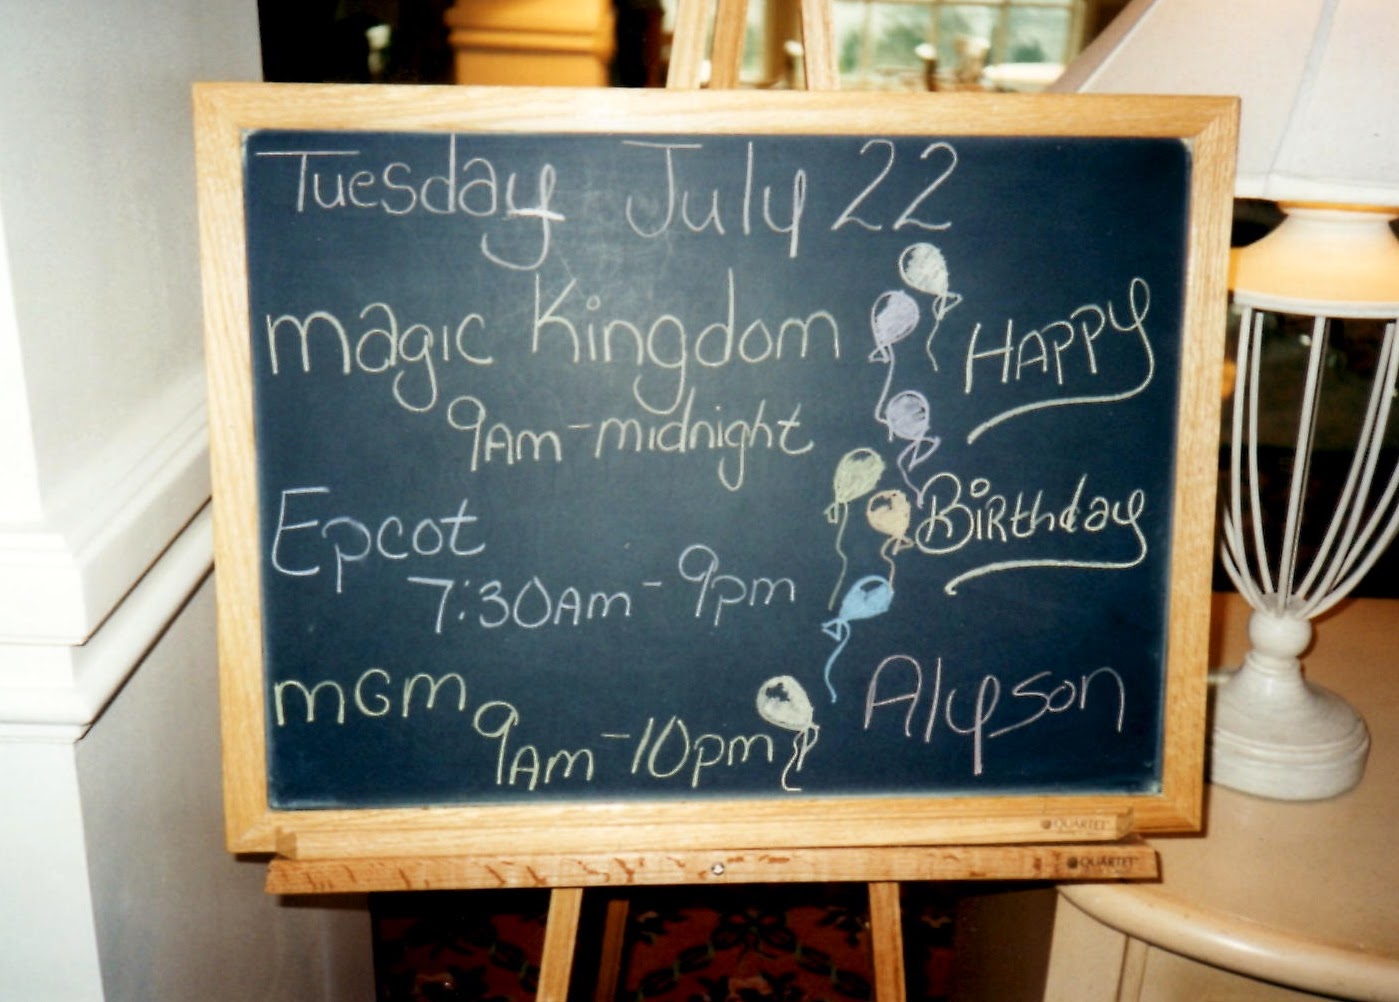 Tuesday July 22
magic Kingdom
9Am-midnight
Epcot
7:30Am-9pm
mGm
9Am-10pm
HAPPY
BiRthday
Alyson
QUARTET
QUARTET